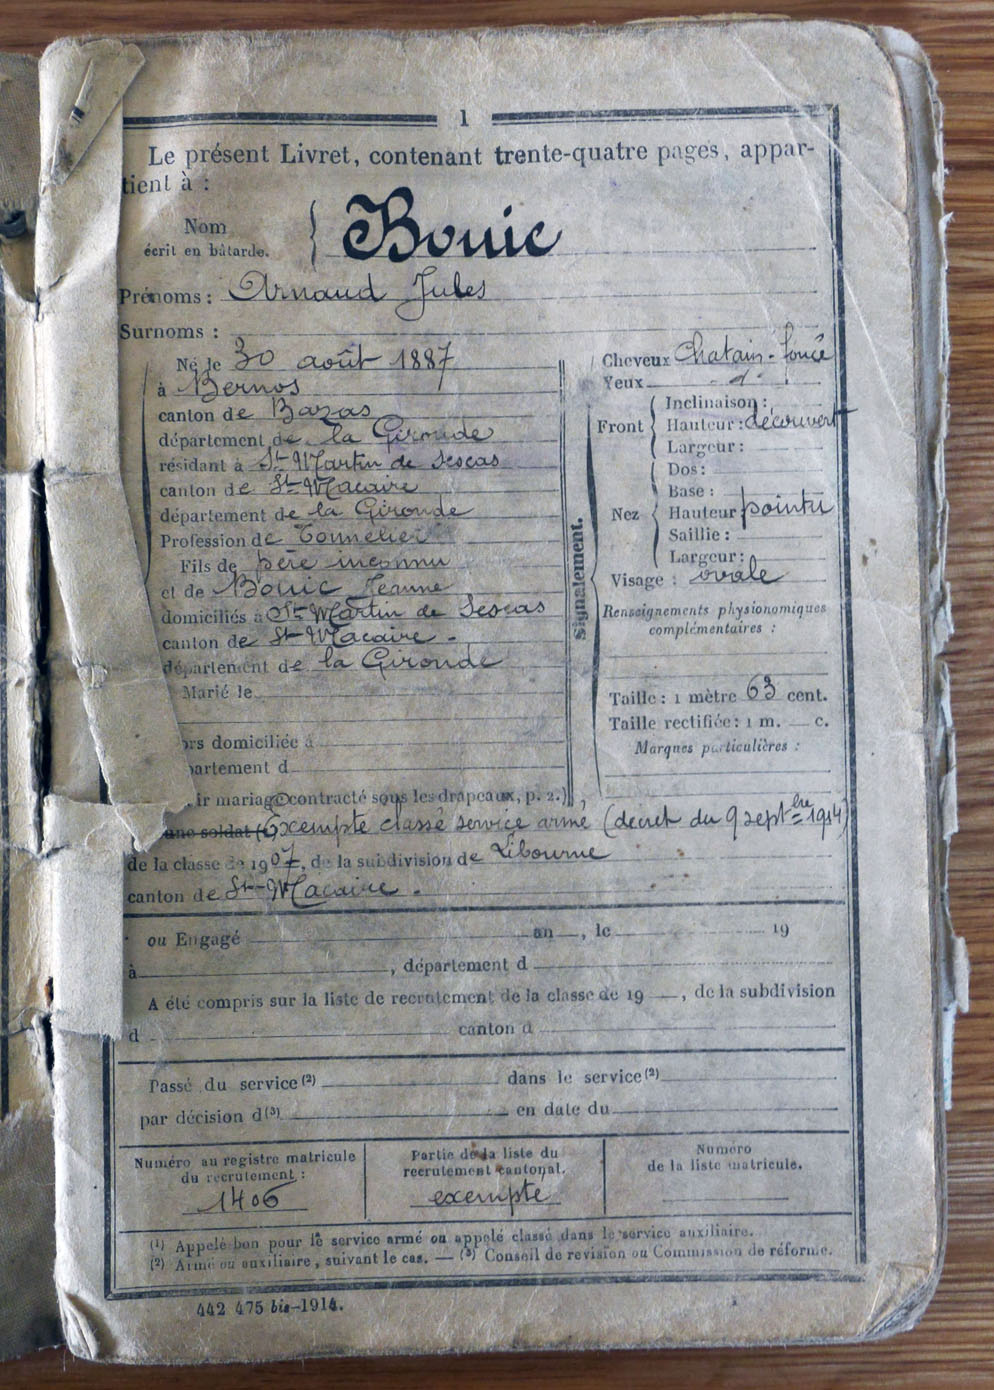 1
Le présent Livret, contenant trente-quatre pages, appar-
tient à :
Nom
écrit en bâtarde.
Bouic
Prénoms : Arnaud Jules
Surnoms :
Né le 30 août 1887
à Bernos
canton de Bazas
département de la Gironde
résidant à St Martin de Sescas
canton de St Macaire
département de la Gironde
Profession de Tonnelier
Fils de père inconnu
et de Bouic Jeanne
domiciliés à St Martin de Sescas
canton de St Macaire
département de la Gironde
Marié le
ors domiciliée à
partement d
ir mariage contracté sous les drapeaux, p. 2.)
Signalement.
Cheveux Chatain-foncé
Yeux d°
Front
Inclinaison :
Hauteur : découvert
Largeur :
Nez
Dos :
Base :
Hauteur pointu
Saillie :
Largeur :
Visage : ovale
Renseignements physionomiques
complémentaires :
Taille : 1 mètre 63 cent.
Taille rectifiée : 1 m. c.
Marques particulières :
une soldat (1) Exempté classé service armé (décret du 9 septbre 1914)
de la classe de 1907, de la subdivision de Libourne
canton de St-Macaire.
ou Engagé an , le 19
à , département d
A été compris sur la liste de recrutement de la classe de 19 , de la subdivision
d canton d
Passé du service (2) dans le service (2)
par décision d (3) en date du
Numéro au registre matricule
du recrutement :
1406
Partie de la liste du
recrutement cantonal.
exempté
Numéro
de la liste matricule.
(1) Appelé bon pour le service armé ou appelé classé dans le service auxiliaire.
(2) Armé ou auxiliaire, suivant le cas. — (3) Conseil de revision ou Commission de réforme.
442 475 bis-1914.